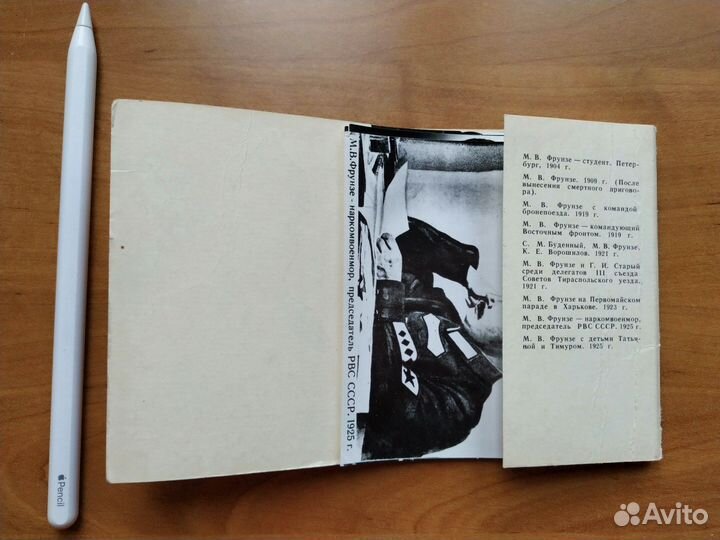 М.В.Фрунзе - наркомвоенмор, председатель РВС СССР. 1925 г.
М. В. Фрунзе — студент. Петер-
бург, 1904 г.
М. В. Фрунзе. 1909 г. (После
вынесения смертного пригово-
ра).
М. В. Фрунзе с командой
бронепоезда. 1919 г.
М. В. Фрунзе — командующий
Восточным фронтом. 1919 г.
С. М. Буденный, М. В. Фрунзе,
К. Е. Ворошилов. 1921 г.
М. В. Фрунзе и Г. И. Старый
среди делегатов III съезда
Советов Тираспольского уезда.
1921 г.
М. В. Фрунзе на Первомайском
параде в Харькове. 1923 г.
М. В. Фрунзе — наркомвоенмор,
председатель РВС СССР. 1925 г.
М. В. Фрунзе с детьми Татья-
ной и Тимуром. 1925 г.
Pencil
Avito